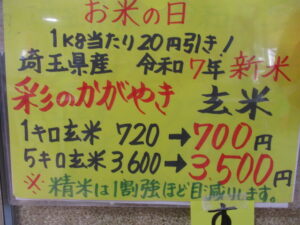 お米の日
1kg当たり20円引き!
埼玉県産 令和7年 新米
彩のかがやき 玄米
1キロ玄米 720→700円
5キロ玄米 3.600→3.500円
※精米は1割強ほど目減りします。
す